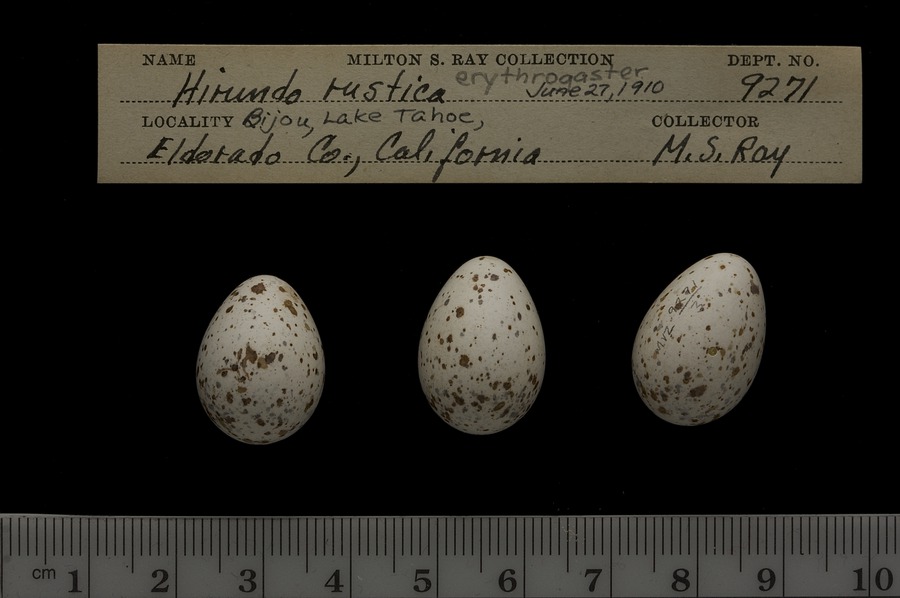 NAME MILTON S. RAY COLLECTION DEPT. NO.
Hirundo rustica erythrogaster June 27, 1910 9271
LOCALITY Bijou, Lake Tahoe, COLLECTOR
Eldorado Co., California M. S. Ray
MVZ
cm 1 2 3 4 5 6 7 8 9 10